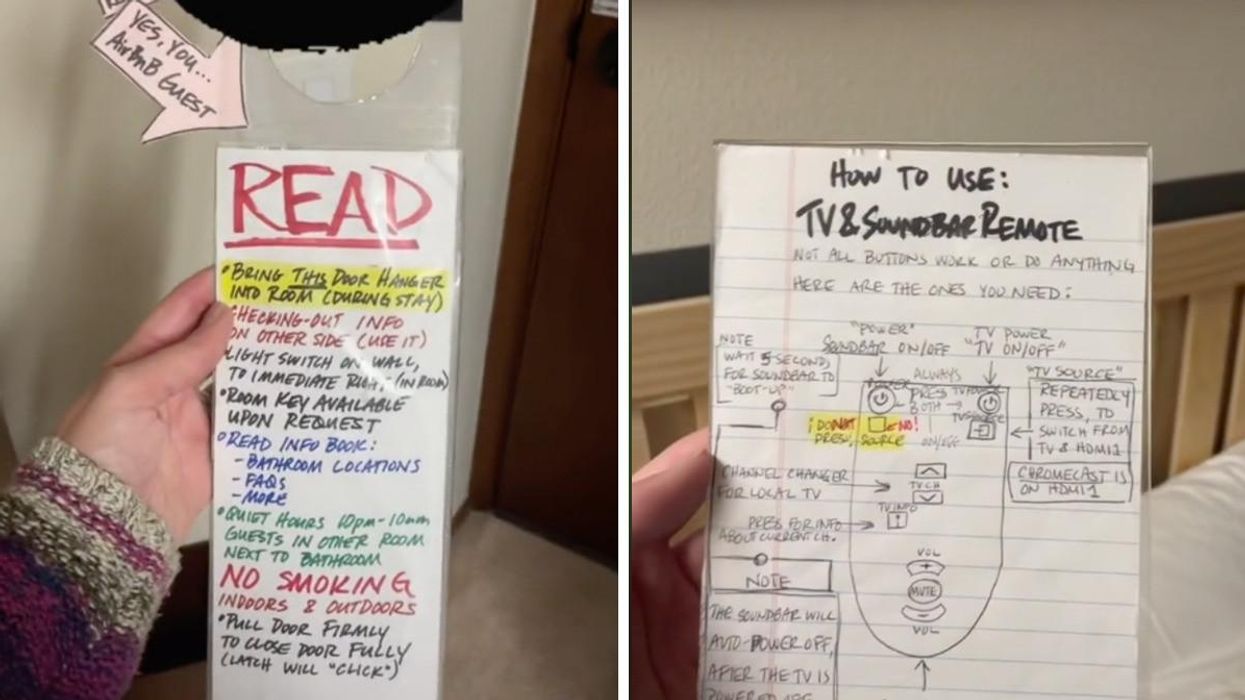 YES, YOU...
AirBnB GUEST
READ
•BRING THIS DOOR HANGER
INTO ROOM (DURING STAY)
CHECKING-OUT INFO
ON OTHER SIDE (USE IT)
LIGHT SWITCH ON WALL,
TO IMMEDIATE RIGHT (IN ROOM)
•ROOM KEY AVAILABLE
UPON REQUEST
•READ INFO BOOK:
-BATHROOM LOCATIONS
-FAQs
-MORE
•QUIET HOURS 10pm-10am
GUESTS IN OTHER ROOM
NEXT TO BATHROOM
NO SMOKING
INDOORS & OUTDOORS
•PULL DOOR FIRMLY
TO CLOSE DOOR FULLY
(LATCH WILL "CLICK")
HOW TO USE:
TV & SOUNDBAR REMOTE
NOT ALL BUTTONS WORK OR DO ANYTHING
HERE ARE THE ONES YOU NEED:
"POWER"
SOUNDBAR ON/OFF
TV POWER
"TV ON/OFF"
NOTE
WAIT 5 SECONDS,
FOR SOUNDBAR TO
"BOOT-UP"
POWER
ALWAYS
PRESS
BOTH
ON/OFF
TV POWER
TV SOURCE
¡DO NOT
PRESS, SOURCE
NO!
"TV SOURCE"
REPEATEDLY
PRESS, TO
SWITCH FROM
TV & HDMI1
CHROMECAST IS
ON HDMI1
CHANNEL CHANGER
FOR LOCAL TV
TV CH
TV INFO
PRESS FOR INFO
ABOUT CURRENT CH.
VOL
+
MUTE
-
VOL
NOTE
THE SOUNDBAR WILL
AUTO-POWER OFF,
AFTER THE TV IS
POWERED OFF